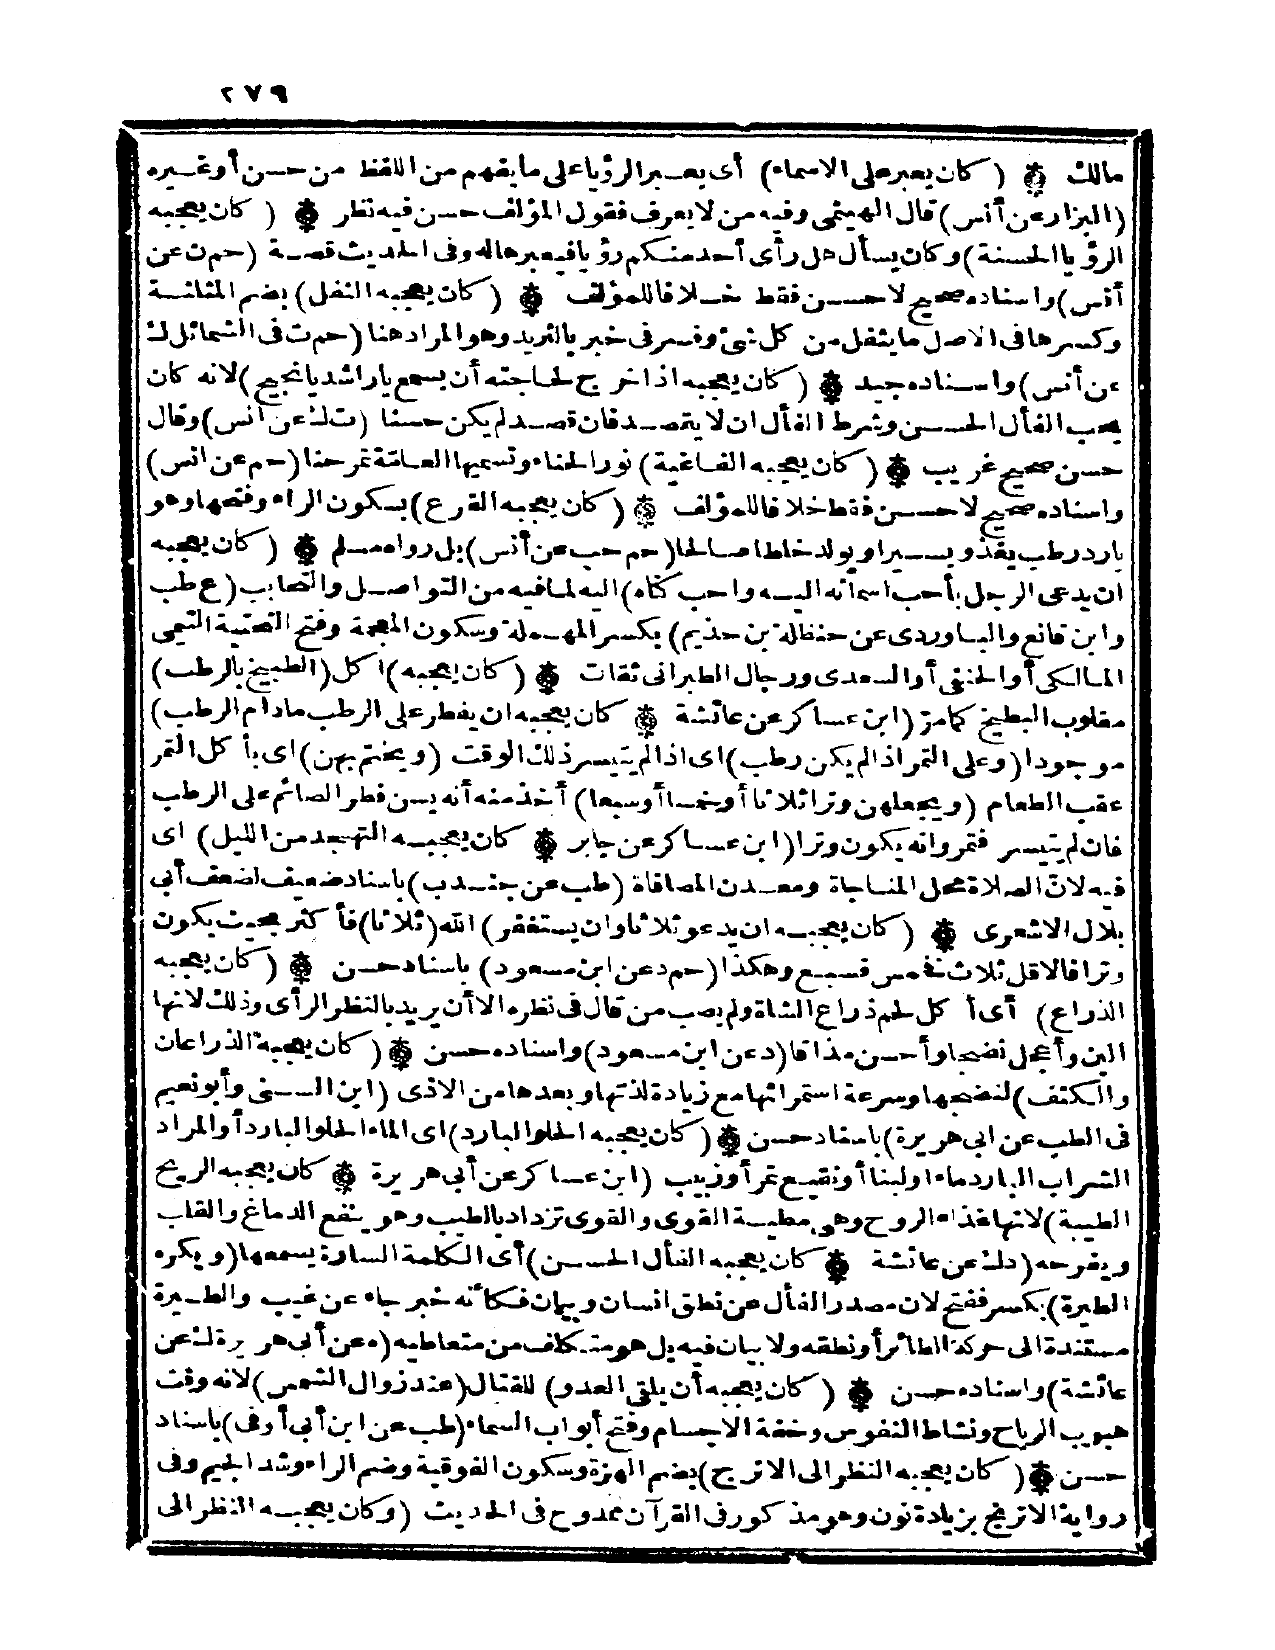 ٢٧٩
مالك ۞ (كان يعبر على الاسماء) أى يعبر الرؤيا على ما يفهم من اللفظ من حسن أوغيره
(البزار عن أنس) قال الهيثمى وفيه من لا يعرف فقول المؤلف حسن فيه نظر ۞ (كان يعجبه
الرؤيا الحسنة) وكان يسأل هل رأى أحد منكم رؤيا فيعبرها له وفى الحديث قصة (حم ت عن
أنس) واسناده صحيح لا حسن فقط خلافا للمؤلف ۞ (كان يعجبه الثفل) بضم المثلثة
وكسرها فى الاصل ما يثفل من كل شئ وفسر فى خبر بالثريد وهو المراد هنا (حم ت فى الشمائل ك
عن أنس) واسناده جيد ۞ (كان يعجبه اذا خرج لحاجته أن يسمع يا راشد يا نجيح) لانه كان
يحب الفأل الحسن وشرط الفأل ان لا يقصد فان قصد لم يكن حسنا (ت ك عن أنس) وقال
حسن صحيح غريب ۞ (كان يعجبه الفاغية) نور الحناء وتسميها العامة تمر حنا (حم عن انس)
واسناده صحيح لا حسن فقط خلافا للمؤلف ۞ (كان يعجبه القرع) بسكون الراء وفتحها وهو
بارد رطب يغذو يسيرا ويولد خلطا صالحا (حم حب عن أنس) بل رواه مسلم ۞ (كان يعجبه
ان يدعى الرجل بأحب اسمائه اليه واحب كناه) اليه لما فيه من التواصل والتحابب (ع طب
وابن قانع والباوردى عن حنظلة بن حذيم) بكسر المهملة وسكون المعجمة وفتح التحتية التيمى
المالكى أو الحنفى أو السعدى ورجال الطبرانى ثقات ۞ (كان يعجبه) اكل (الطبيخ بالرطب)
مقلوب البطيخ كما مر (ابن عساكر عن عائشة ۞ كان يعجبه ان يفطر على الرطب مادام الرطب)
موجودا (وعلى التمر اذا لم يكن رطب) اى اذا لم يتيسر ذلك الوقت (ويختم بهن) اى يأكل التمر
عقب الطعام (ويجعلهن وترا ثلاثا أو خمسا أو سبعا) أخذ منه أنه يسن فطر الصائم على الرطب
فان لم يتيسر فتمر وانه يكون وترا (ابن عساكر عن جابر ۞ كان يعجبه التهجد من الليل) اى
فيه لان الصلاة محل المناجاة ومعدن المصافاة (طب عن جندب) باسناد ضعيف لضعف أبى
بلال الاشعرى ۞ (كان يعجبه ان يدعو ثلاثا وان يستغفر) الله (ثلاثا) فأكثر بحيث يكون
وترا فالاقل ثلاث فخمس فسبع وهكذا (حم د عن ابن مسعود) باسناد حسن ۞ (كان يعجبه
الذراع) أى أكل لحم ذراع الشاة ولم يصب من قال فى نظره الا أن يريد بالنظر الرأى وذلك لانها
الين وأعجل نضجا وأحسن مذاقا (د عن ابن مسعود) واسناده حسن ۞ (كان يعجبه الذراعان
والكتف) لنضجها وسرعة استمرائها مع زيادة لذتها وبعدها من الاذى (ابن السنى وأبو نعيم
فى الطب عن ابى هريرة) باسناد حسن ۞ (كان يعجبه الحلو البارد) اى الماء الحلو البارد أو المراد
الشراب البارد ماء او لبنا أو نقيع تمر أو زبيب (ابن عساكر عن أبى هريرة ۞ كان يعجبه الريح
الطيبة) لانها غذاء الروح وهى مطية القوى والقوى تزداد بالطيب وهو ينفع الدماغ والقلب
ويفرحه (د ك عن عائشة ۞ كان يعجبه الفأل الحسن) أى الكلمة السارة يسمعها (ويكره
الطيرة) بكسر ففتح لان مصدر الفأل عن نطق انسان وبيان فكأنه خبر جاء عن غيب والطيرة
مستندة الى حركة الطائر أو نطقه ولا بيان فيه بل هو متكلف من متعاطيه (ه عن أبى هريرة ك عن
عائشة) واسناده حسن ۞ (كان يعجبه أن يلقى العدو) للقتال (عند زوال الشمس) لانه وقت
هبوب الرياح ونشاط النفوس وخفة الاجسام وفتح أبواب السماء (طب عن ابن أبى أوفى) باسناد
حسن ۞ (كان يعجبه النظر الى الاترج) بضم الهمزة وسكون الفوقية وضم الراء وشد الجيم وفى
رواية الاترنج بزيادة نون وهو مذكور فى القرآن ممدوح فى الحديث (وكان يعجبه النظر الى